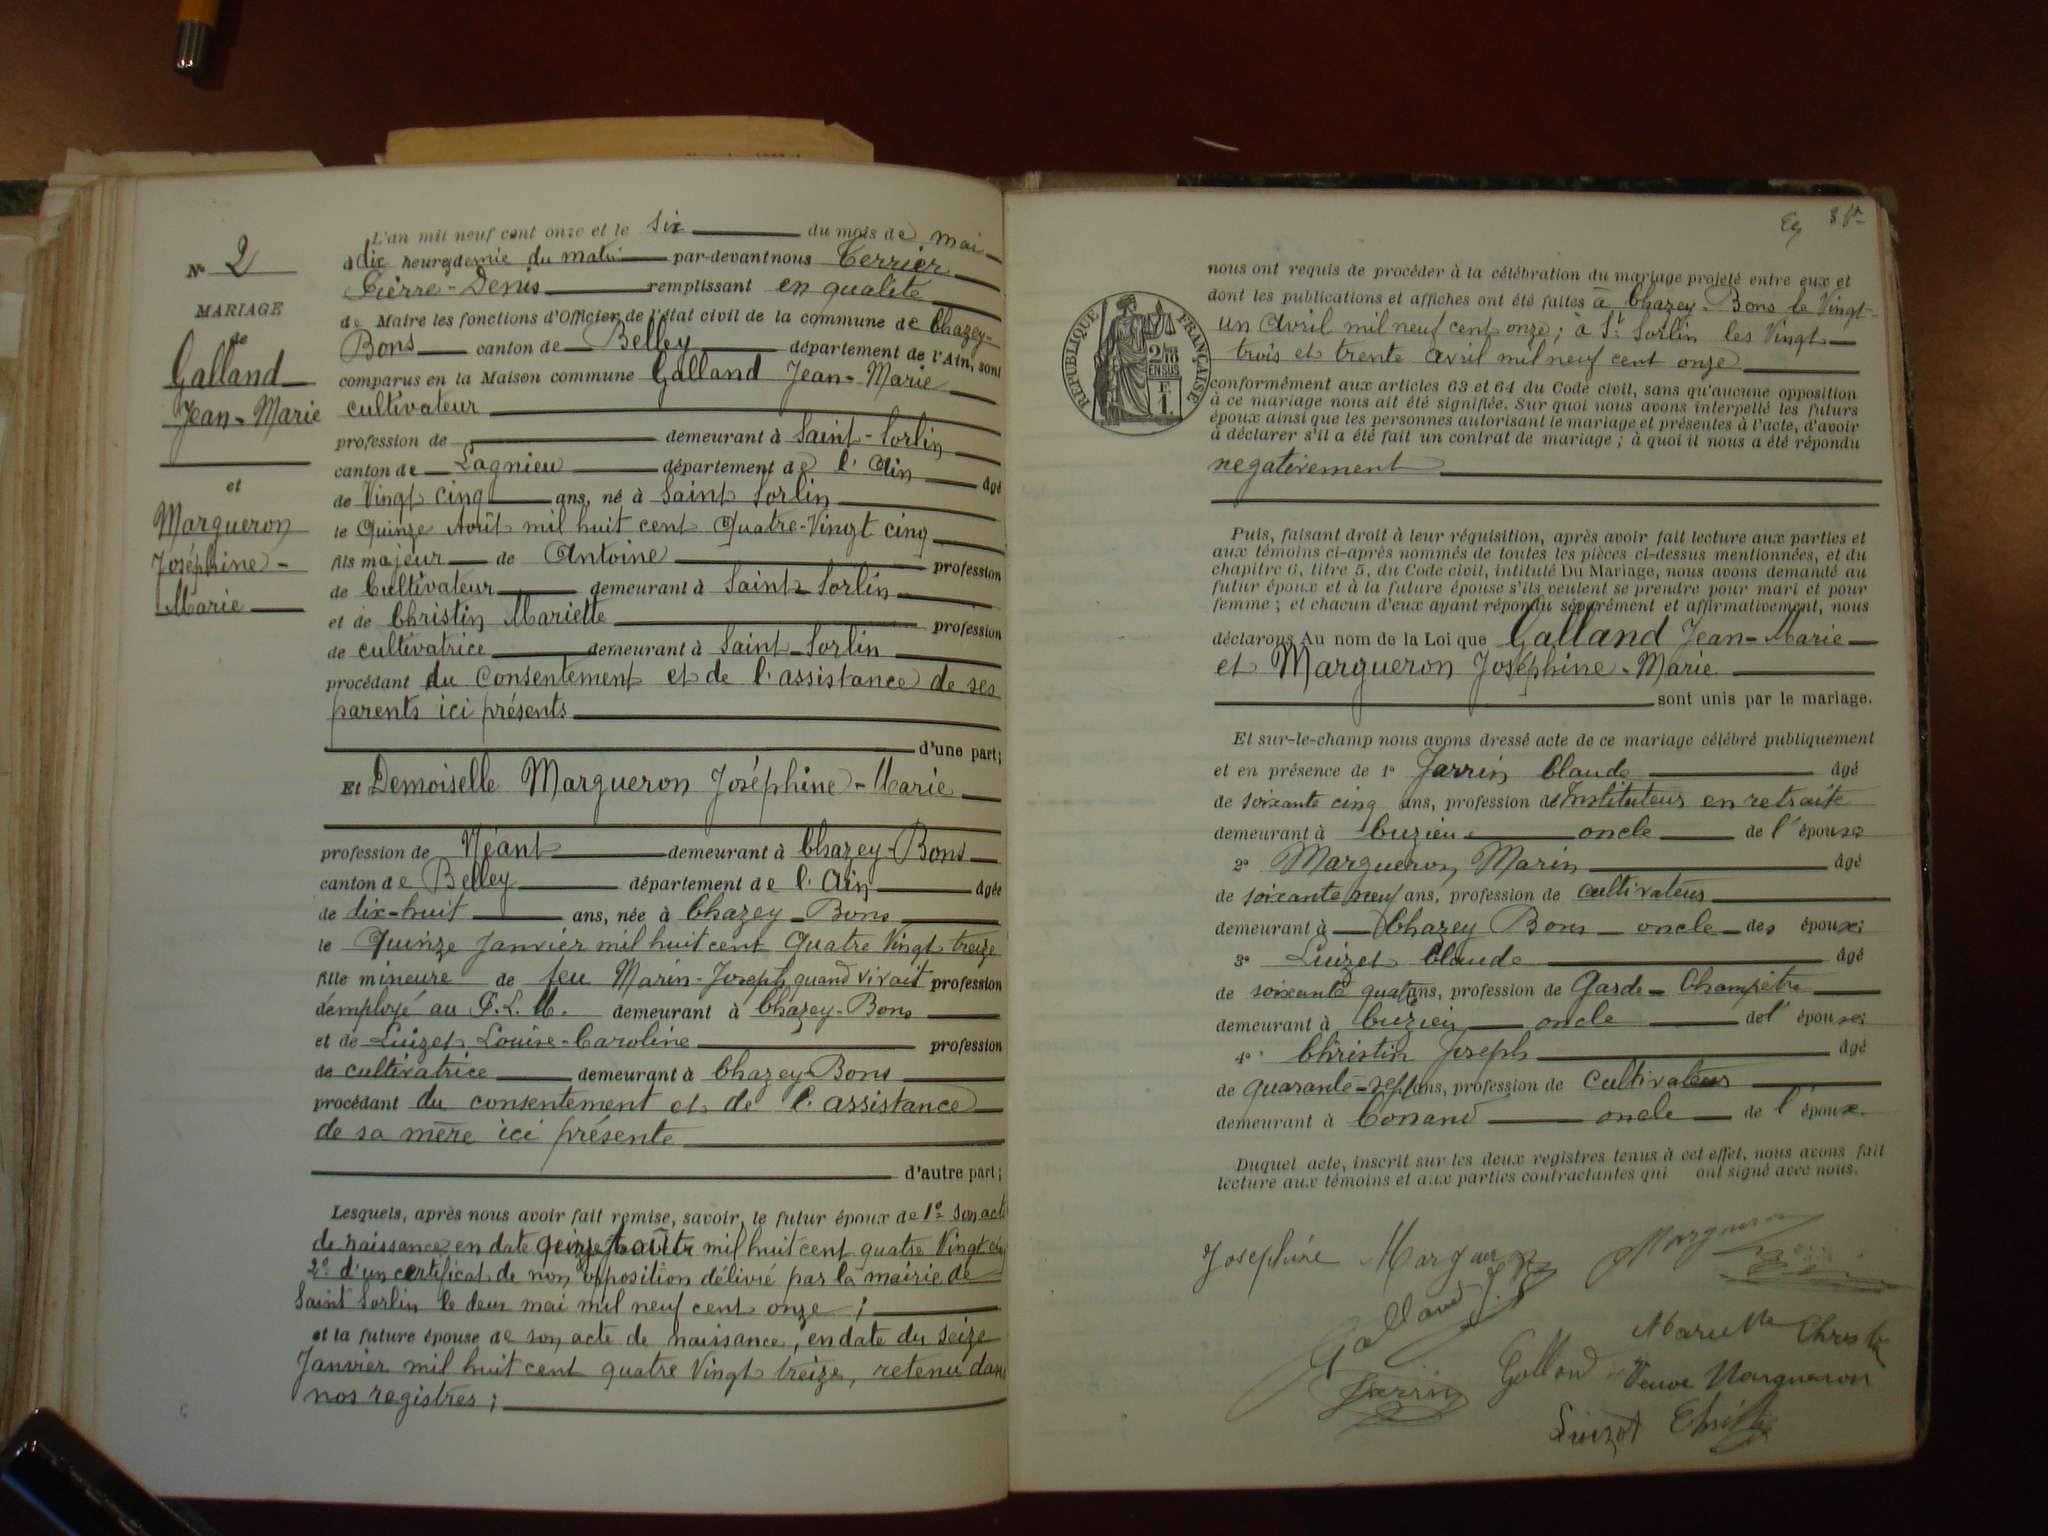 Nº 2
MARIAGE
de
Galland
Jean-Marie
et
Margueron
Joséphine-
Marie
L'an mil neuf cent onze et le six du mois de mai
à dix heures demie du matin par-devant nous Terrier
Pierre-Denis remplissant en qualité
de Maire les fonctions d'Officier de l'état civil de la commune de Chazey-
Bons canton de Belley département de l'Ain, sont
comparus en la Maison commune Galland Jean-Marie
cultivateur
profession de demeurant à Saint-Sorlin
canton de Lagnieu département de l'Ain âgé
de Vingt cinq ans, né à Saint Sorlin
le Quinze Août mil huit cent Quatre-Vingt cinq
fils majeur de Antoine profession
de Cultivateur demeurant à Saint-Sorlin
et de Christin Mariette profession
de cultivatrice demeurant à Saint-Sorlin
procédant du Consentement et de l'assistance de ses
parents ici présents
d'une part;
Et Demoiselle Margueron Joséphine-Marie
profession de Néant demeurant à Chazey-Bons
canton de Belley département de l'Ain âgée
de dix-huit ans, née à Chazey-Bons
le Quinze Janvier mil huit cent Quatre Vingt treize
fille mineure de feu Marin-Joseph quand vivait profession
d'employé au P.L.M. demeurant à Chazey-Bons
et de Luizet Louise-Caroline profession
de cultivatrice demeurant à Chazey-Bons
procédant du consentement et de l'assistance
de sa mère ici présente
d'autre part;
Lesquels, après nous avoir fait remise, savoir, le futur époux de 1º son acte
de naissance en date quinze août mil huit cent quatre Vingt cinq
2º d'un certificat de non opposition délivré par la mairie de
Saint Sorlin le deux mai mil neuf cent onze;
et la future épouse de son acte de naissance, en date du seize
Janvier mil huit cent quatre Vingt treize, retenu dans
nos registres;
RÉPUBLIQUE FRANÇAISE
2/10
EN SUS
1 F.
nous ont requis de procéder à la célébration du mariage projeté entre eux et
dont les publications et affiches ont été faites à Chazey-Bons le Vingt-
un Avril mil neuf cent onze; à St Sorlin les Vingt
trois et trente avril mil neuf cent onze
conformément aux articles 63 et 64 du Code civil, sans qu'aucune opposition
à ce mariage nous ait été signifiée. Sur quoi nous avons interpellé les futurs
époux ainsi que les personnes autorisant le mariage et présentes à l'acte, d'avoir
à déclarer s'il a été fait un contrat de mariage; à quoi il nous a été répondu
négativement
Puis, faisant droit à leur réquisition, après avoir fait lecture aux parties et
aux témoins ci-après nommés de toutes les pièces ci-dessus mentionnées, et du
chapitre 6, titre 5, du Code civil, intitulé Du Mariage, nous avons demandé au
futur époux et à la future épouse s'ils veulent se prendre pour mari et pour
femme; et chacun d'eux ayant répondu séparément et affirmativement, nous
déclarons Au nom de la Loi que Galland Jean-Marie
et Margueron Joséphine-Marie
sont unis par le mariage.
Et sur-le-champ nous avons dressé acte de ce mariage célébré publiquement
et en présence de 1º Jarrin Claude âgé
de soixante cinq ans, profession de Instituteur en retraite
demeurant à Cuzieu oncle de l'épouse
2º Margueron Marin âgé
de soixante neuf ans, profession de cultivateur
demeurant à Chazey Bons oncle des époux;
3º Luizet Claude âgé
de soixante quatre ans, profession de Garde-Champêtre
demeurant à Cuzieu oncle de l'épouse;
4º Christin Joseph âgé
de quarante-sept ans, profession de cultivateur
demeurant à Conand oncle de l'époux.
Duquel acte, inscrit sur les deux registres tenus à cet effet, nous avons fait
lecture aux témoins et aux parties contractantes qui ont signé avec nous.
Joséphine Margueron Margueron
Galland J.
Mariette Christin
Jarrin Galland Veuve Margueron
Luizet Christin